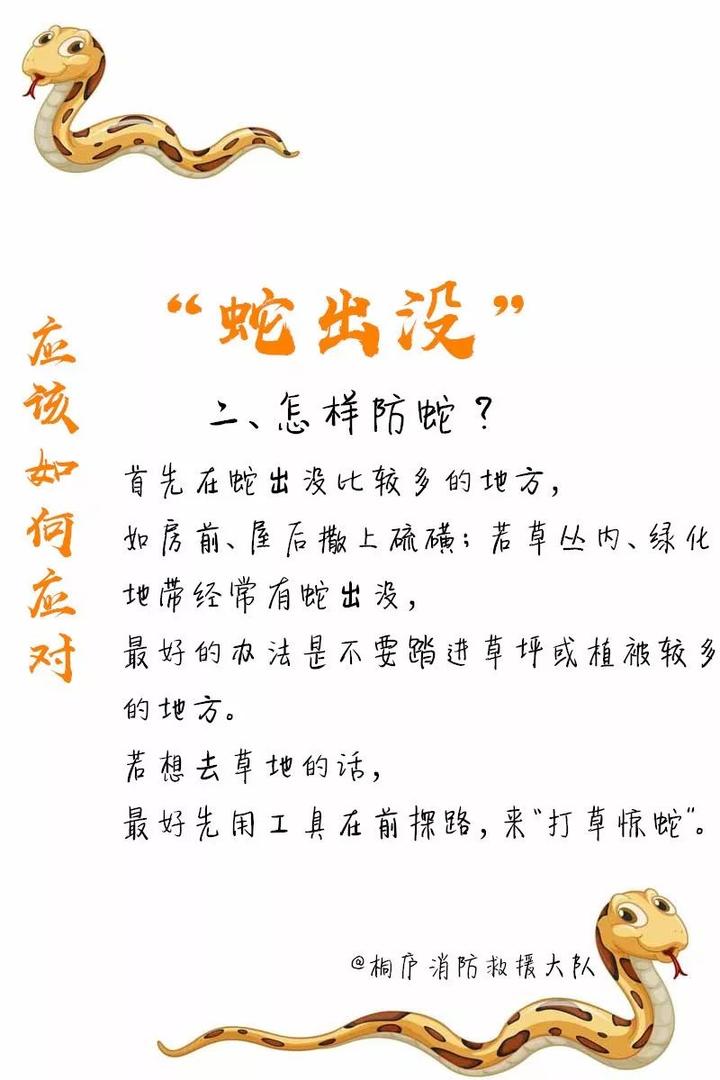 “蛇出没”
应该如何应对
二、怎样防蛇？
首先在蛇出没比较多的地方，
如房前、屋后撒上硫磺；若草丛内、绿化
地带经常有蛇出没，
最好的办法是不要踏进草坪或植被较多
的地方。
若想去草地的话，
最好先用工具在前探路，来“打草惊蛇”。
@桐庐消防救援大队